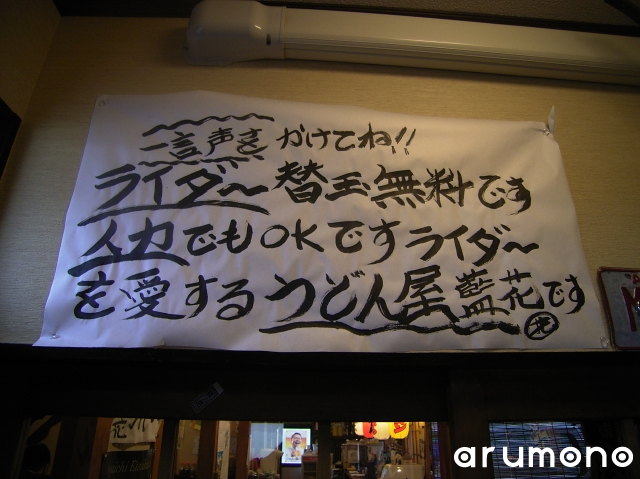 一言声を かけてね!!
ライダ〜 替玉無料です
人力でもOKですライダ〜
を愛するうどん屋藍花です
花
arumono